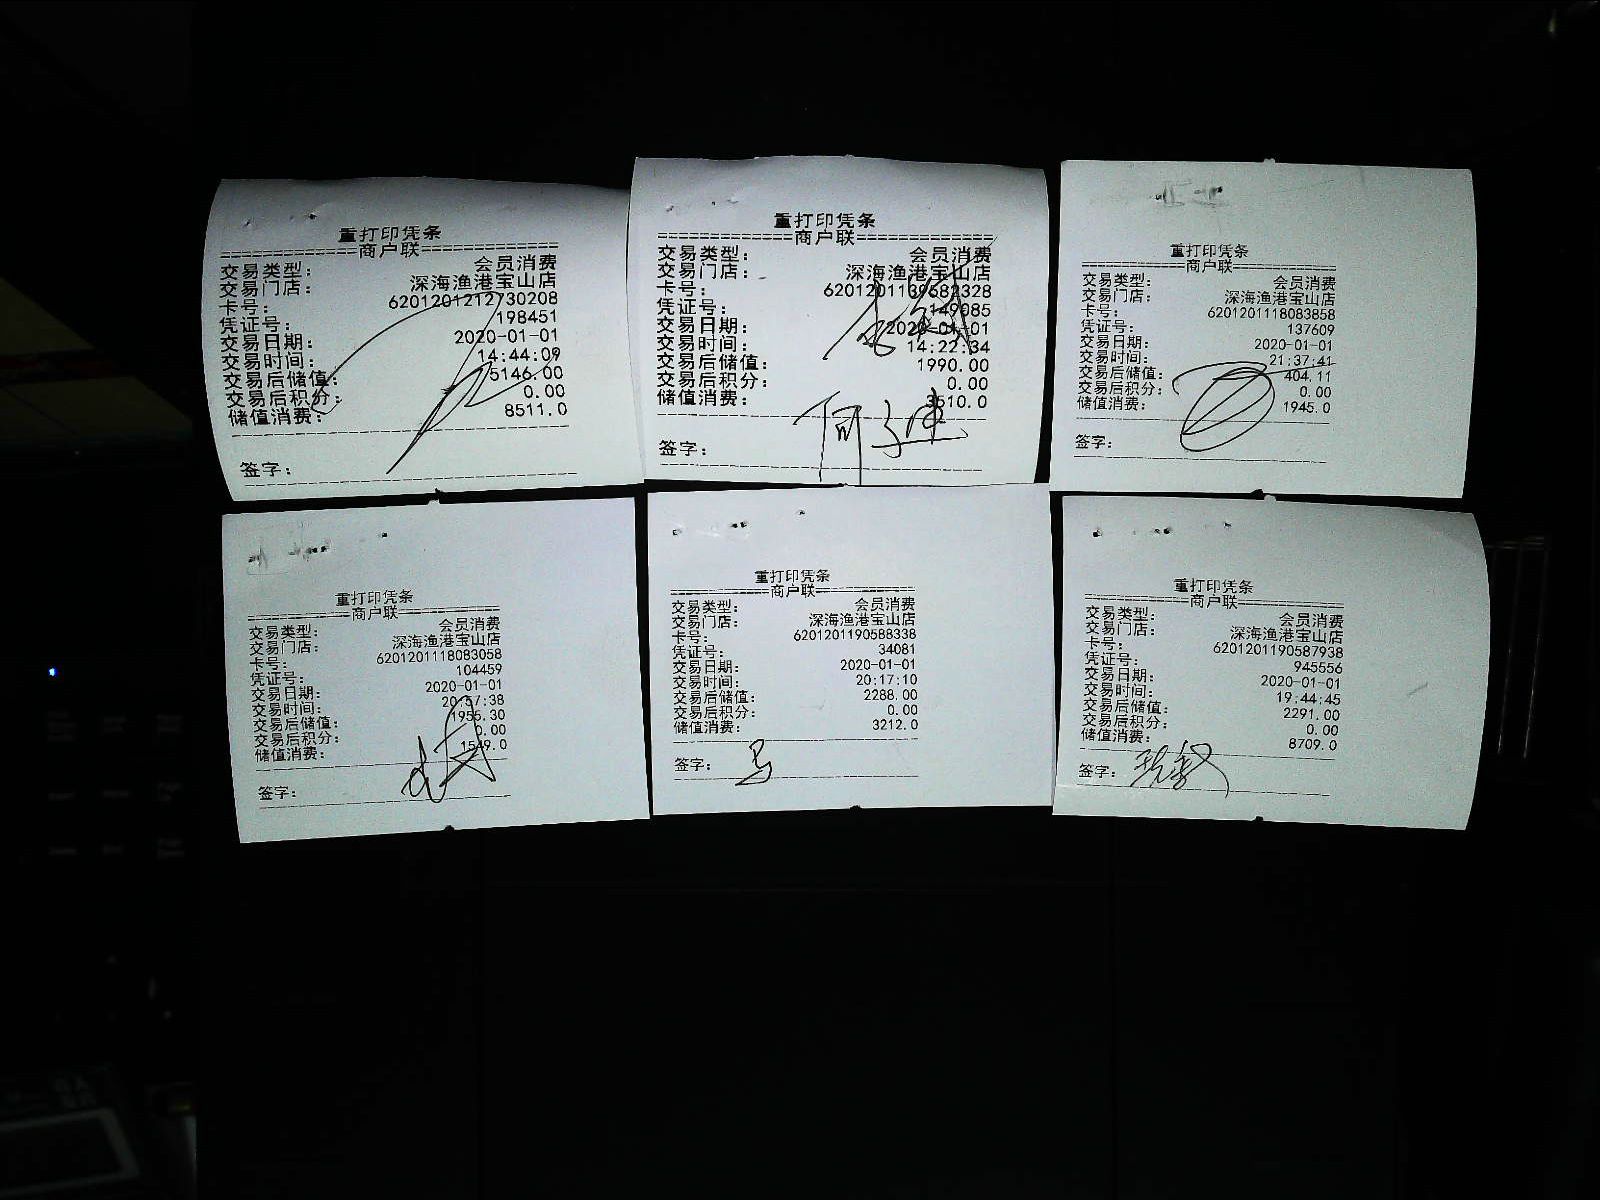 重打印凭条
==============商户联==============
交易类型: 会员消费
交易门店: 深海渔港宝山店
卡号: 6201201212730208
凭证号: 198451
交易日期: 2020-01-01
交易时间: 14:44:09
交易后储值: 5146.00
交易后积分: 0.00
储值消费: 8511.0
签字:
重打印凭条
==============商户联==============
交易类型: 会员消费
交易门店: 深海渔港宝山店
卡号:
凭证号: 149085
交易日期: 2020-01-01
交易时间: 14:22:34
交易后储值: 1990.00
交易后积分: 0.00
储值消费: 3510.0
签字:
重打印凭条
==============商户联==============
交易类型: 会员消费
交易门店: 深海渔港宝山店
卡号: 6201201118083858
凭证号: 137609
交易日期: 2020-01-01
交易时间: 21:37:41
交易后储值: 404.11
交易后积分: 0.00
储值消费: 1945.0
签字:
重打印凭条
==============商户联==============
交易类型: 会员消费
交易门店: 深海渔港宝山店
卡号: 6201201118083058
凭证号: 104459
交易日期: 2020-01-01
交易时间: 20:37:38
交易后储值: 1955.30
交易后积分: 0.00
储值消费: 1549.0
签字:
重打印凭条
==============商户联==============
交易类型: 会员消费
交易门店: 深海渔港宝山店
卡号: 6201201190588338
凭证号: 34081
交易日期: 2020-01-01
交易时间: 20:17:10
交易后储值: 2288.00
交易后积分: 0.00
储值消费: 3212.0
签字:
重打印凭条
==============商户联==============
交易类型: 会员消费
交易门店: 深海渔港宝山店
卡号: 6201201190587938
凭证号: 945556
交易日期: 2020-01-01
交易时间: 19:44:45
交易后储值: 2291.00
交易后积分: 0.00
储值消费: 8709.0
签字: